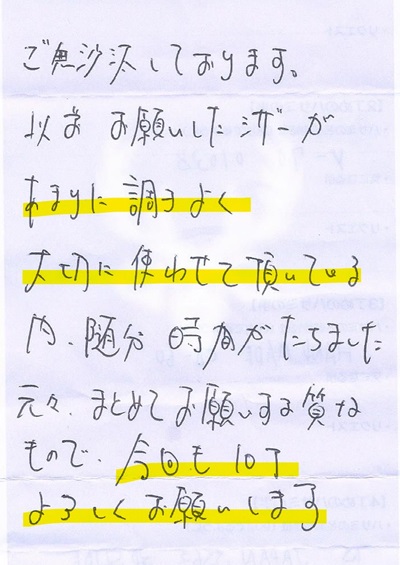 ご無沙汰しております。
以前 お願いしたシザーが
あまりに調子よく
大切に使わせて頂いている
内、随分 時間がたちました
元々、まとめてお願いする質な
もので、今回も10丁
よろしくお願いします